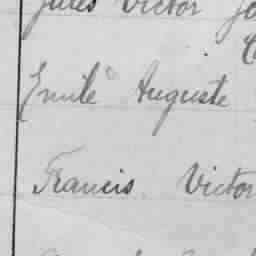 Jules Victor
Emile Auguste
Francis Victor